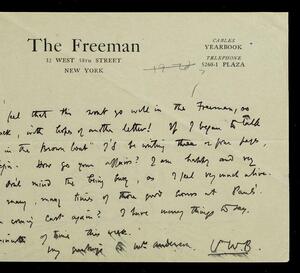 The Freeman
32 WEST 58TH STREET
NEW YORK
CABLES
YEARBOOK
TELEPHONE
5260-1 PLAZA
feel that this won't go well in the Freeman, as
with hopes of another letter! If I began to talk
in the Brown Coat" I'd be writing three or four pages,
How go your affairs? I am happy and very
don't mind the being busy, as I feel very much alive.
many, many times of those good hours at Paul's
coming East again? I have many things to say.
of time this week.
my greetings to Mrs. Anderson. V.W.B.